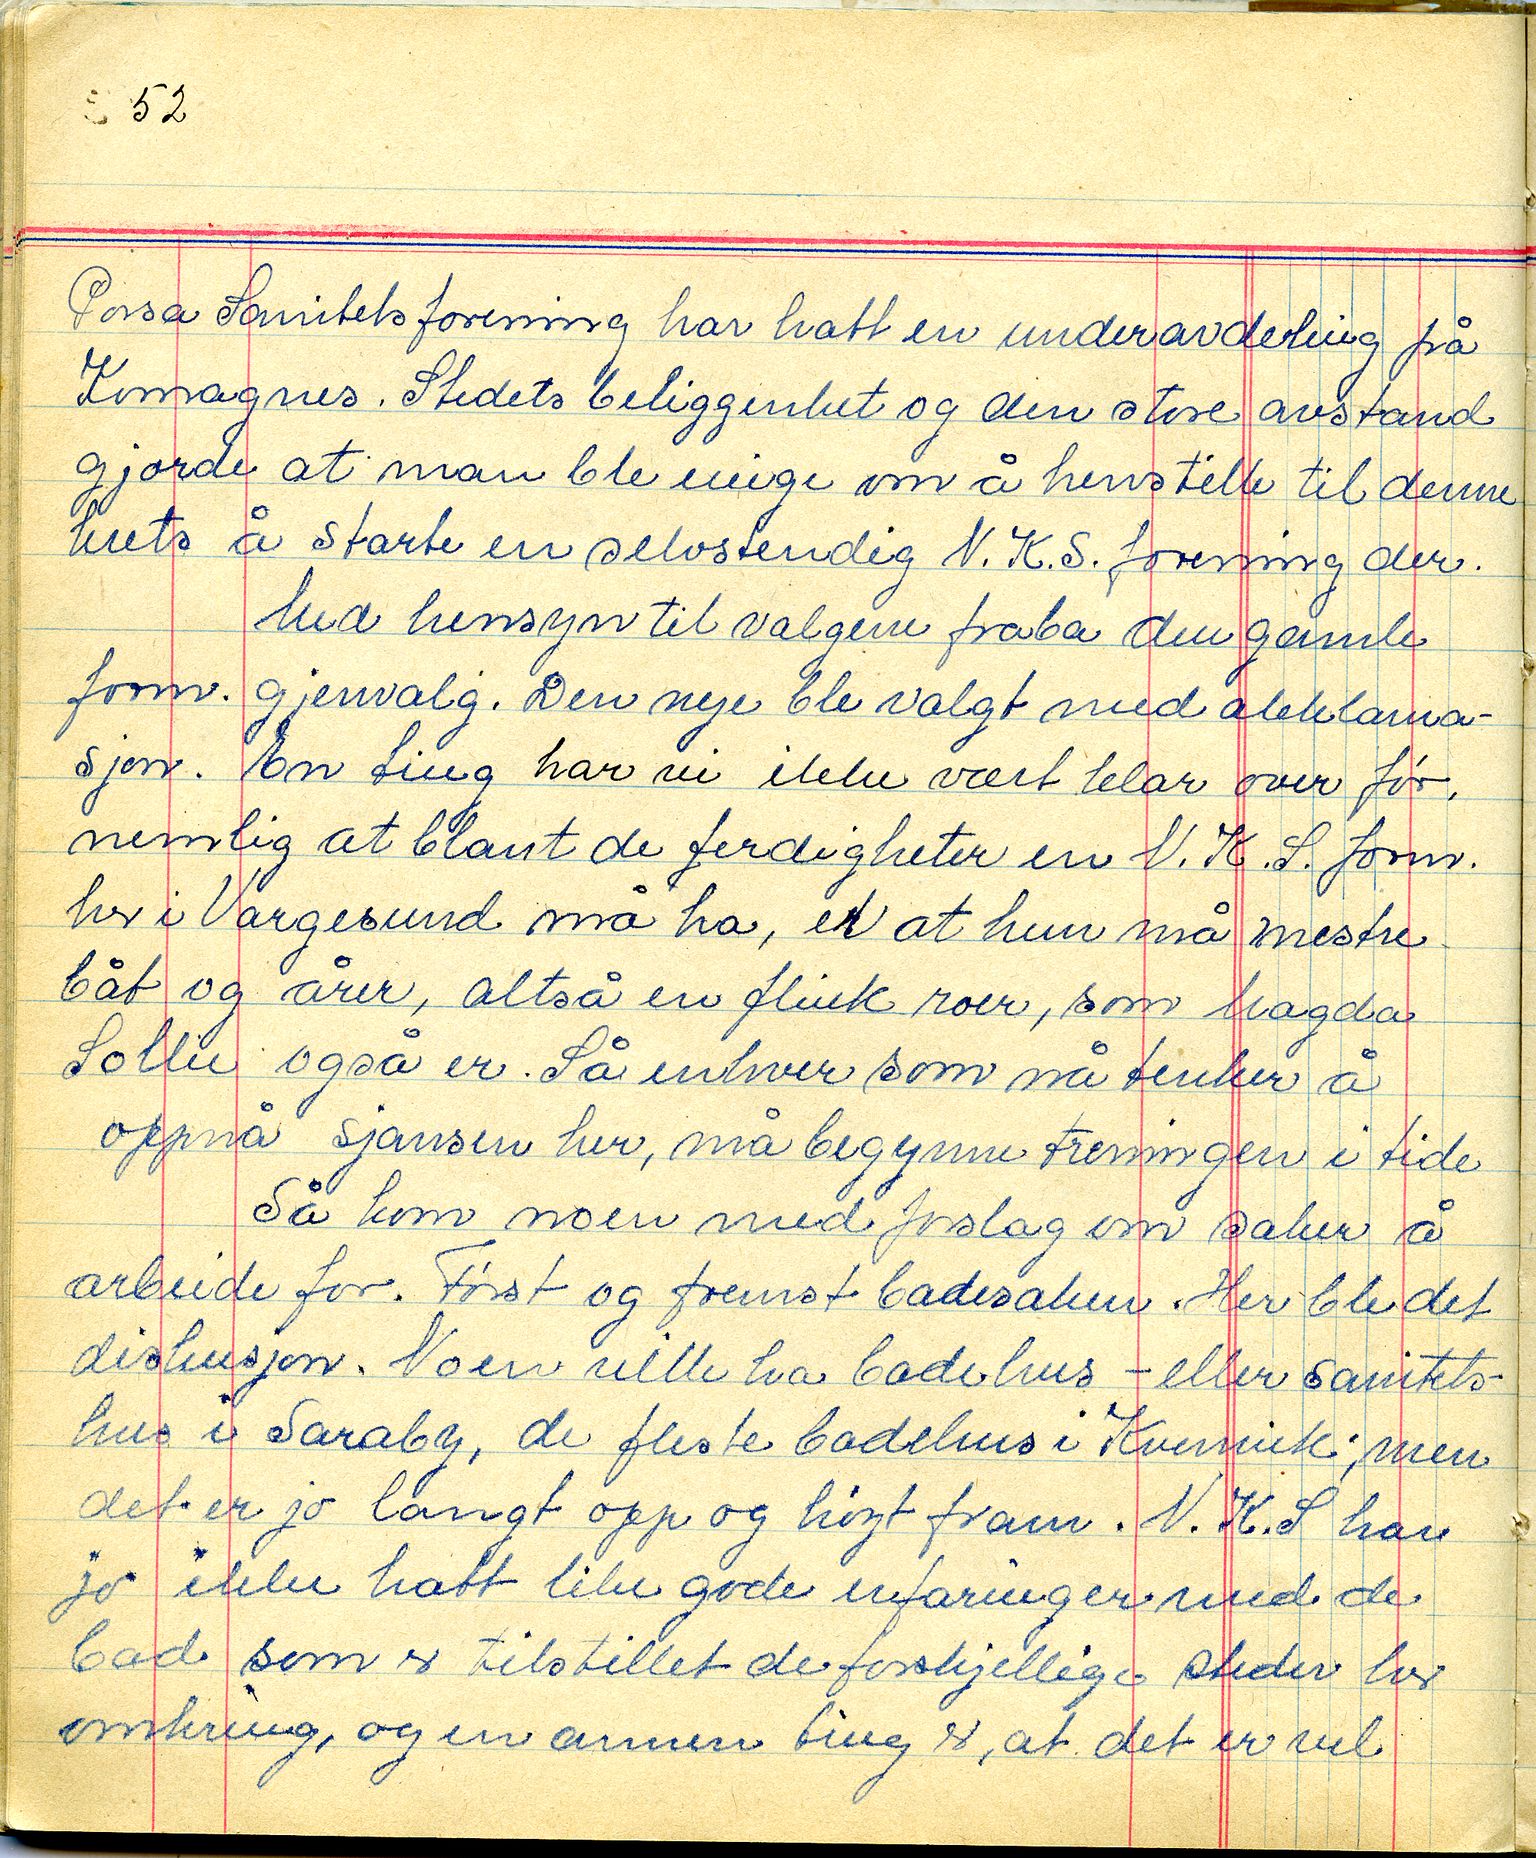 52
Porsa Sanitetsforening har hatt en underavdeling på
Komagnes. Stedets beliggenhet og den store avstand
gjorde at man ble enige om å henstille til denne
hets å starte en selvstendig N.K.S. forening der.
Med hensyn til valgene fraba den gamle
form. gjenvalg. Den nye ble valgt med akklama-
sjon. En ting har vi ikke vært klar over før,
nemlig at blant de ferdigheter en N.K.S. form.
her i Vargesund må ha, er at hun må mestre
båt og årer, altså en flink roer, som Magda
Sollie også er. Så enhver som nå tenker å
oppnå sjansen her, må begynne treningen i tide
Så kom noen med forslag om saker å
arbeide for. Først og fremst badesaken. Her ble det
diskusjon. Noen ville ha badehus - eller sanitets-
hus i Saraby, de fleste badehus i Kvenvik, men
det er jo langt opp og høyt fram. N.K.S har
jo ikke hatt like gode erfaringer med de
bad som er tilstillet de forskjellige steder her
omkring, og en annen ting er, at det er vel